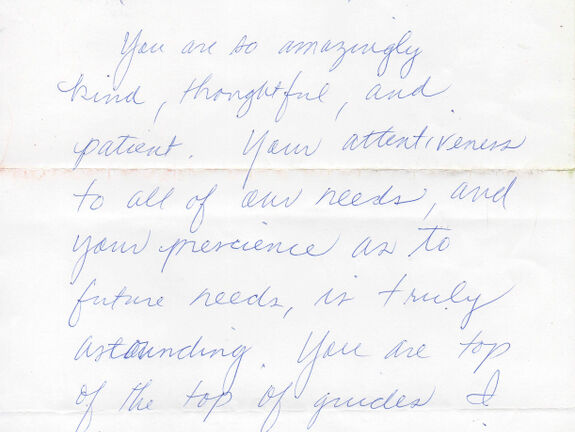 You are so amazingly
kind, thoughtful, and
patient. Your attentiveness
to all of our needs, and
your prescience as to
future needs, is truly
astounding. You are top
of the top of guides I